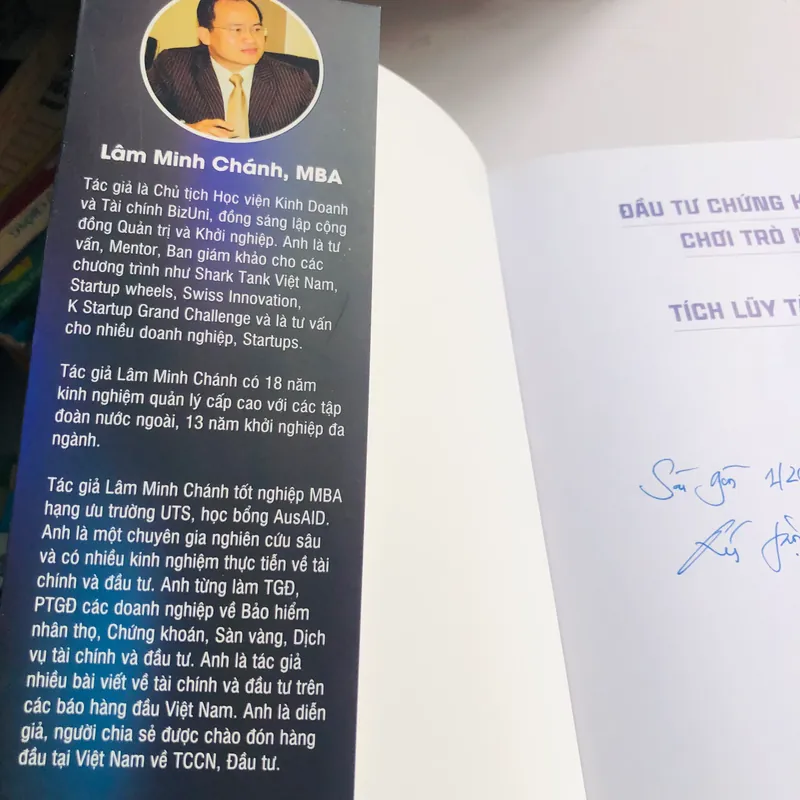 Lâm Minh Chánh, MBA
Tác giả là Chủ tịch Học viện Kinh Doanh
và Tài chính BizUni, đồng sáng lập cộng
đồng Quản trị và Khởi nghiệp. Anh là tư
vấn, Mentor, Ban giám khảo cho các
chương trình như Shark Tank Việt Nam,
Startup wheels, Swiss Innovation,
K Startup Grand Challenge và là tư vấn
cho nhiều doanh nghiệp, Startups.
Tác giả Lâm Minh Chánh có 18 năm
kinh nghiệm quản lý cấp cao với các tập
đoàn nước ngoài, 13 năm khởi nghiệp đa
ngành.
Tác giả Lâm Minh Chánh tốt nghiệp MBA
hạng ưu trường UTS, học bổng AusAID.
Anh là một chuyên gia nghiên cứu sâu
và có nhiều kinh nghiệm thực tiễn về tài
chính và đầu tư. Anh từng làm TGĐ,
PTGĐ các doanh nghiệp về Bảo hiểm
nhân thọ, Chứng khoán, Sàn vàng, Dịch
vụ tài chính và đầu tư. Anh là tác giả
nhiều bài viết về tài chính và đầu tư trên
các báo hàng đầu Việt Nam. Anh là diễn
giả, người chia sẻ được chào đón hàng
đầu tại Việt Nam về TCCN, Đầu tư.
ĐẦU TƯ CHỨNG
CHƠI TRÒ
TÍCH LŨY
Sài gòn